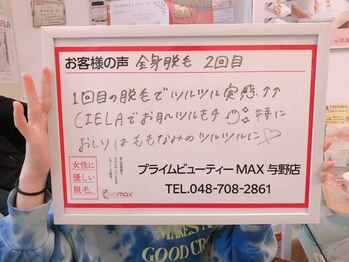 お客様の声 全身脱毛 2回目
1回目の脱毛でツルツル実感↑↑
CIELAでお肌ツルモチ 特に
おしりはももなみのツルツルに♡
女性に
優しい
脱毛。
max
プライムビューティーMAX 与野店
TEL.048-708-2861
MAKES A
GOOD CR